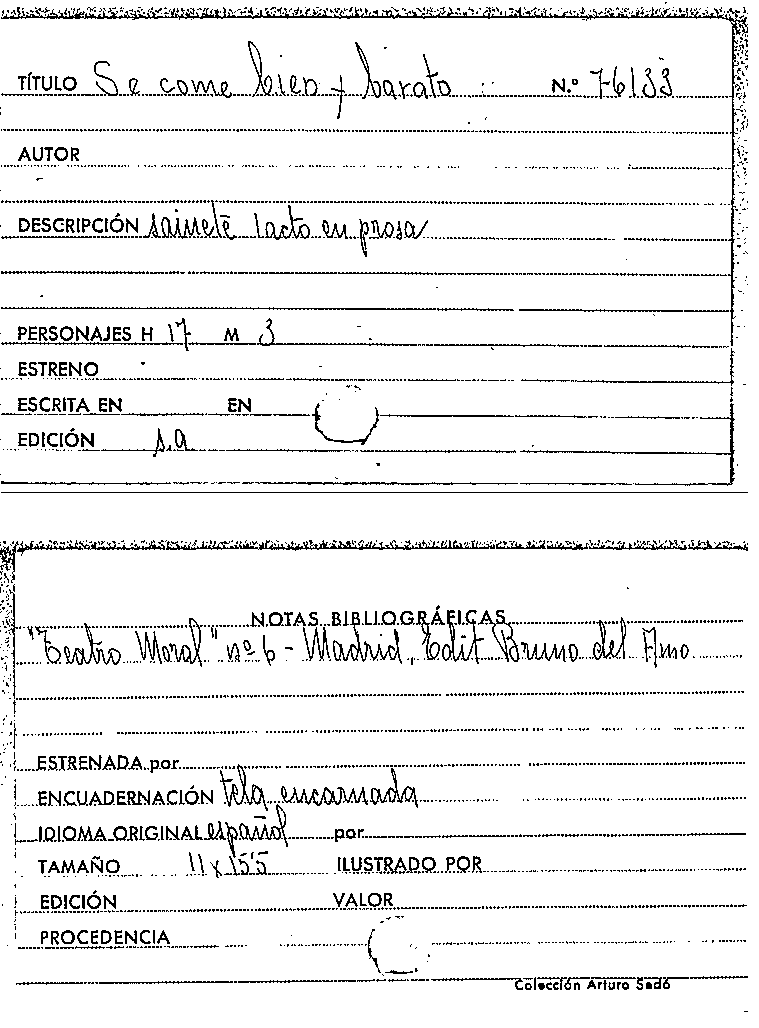 TÍTULO Se come bien y barato N.º 76133
AUTOR
DESCRIPCIÓN sainete 1 acto en prosa
PERSONAJES H 17 M 3
ESTRENO
ESCRITA EN EN
EDICIÓN s.a
NOTAS BIBLIOGRÁFICAS
"Teatro Moral" nº 6 - Madrid, Edit Bruno del Amo
ESTRENADA por
ENCUADERNACIÓN tela encarnada
IDIOMA ORIGINAL español por
TAMAÑO 11 x 15'5 ILUSTRADO POR
EDICIÓN VALOR
PROCEDENCIA
Colección Arturo Sedó